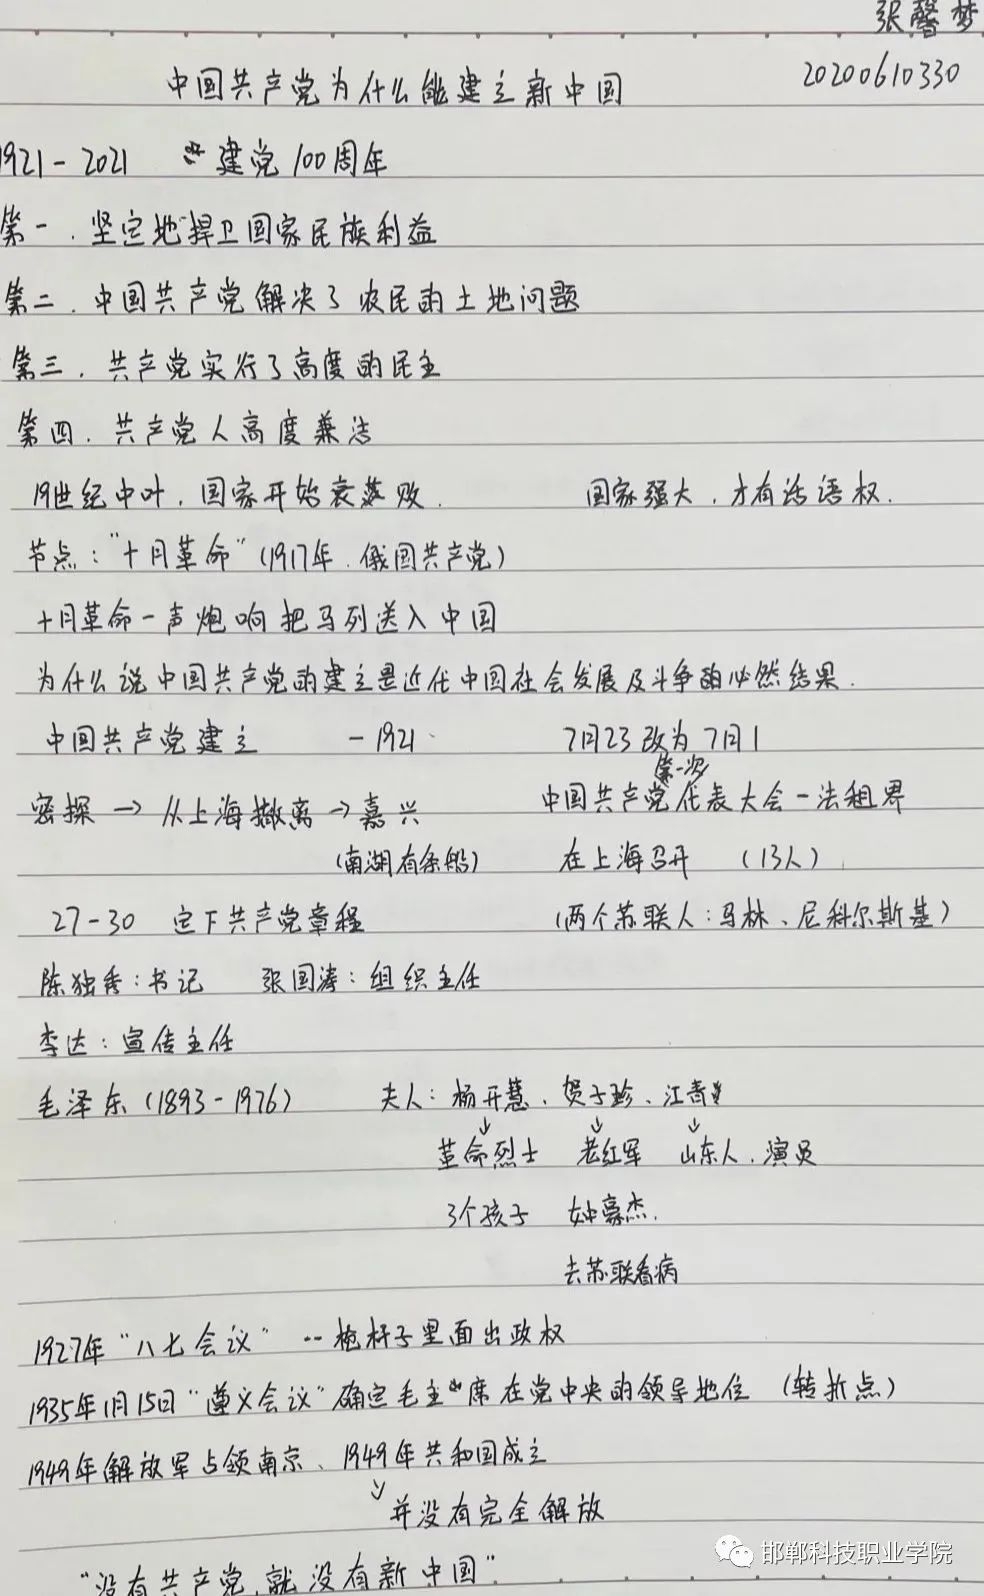 张馨梦
中国共产党为什么能建立新中国 20200610330
1921-2021 建党100周年
第一.坚定地捍卫国家民族利益
第二.中国共产党解决了农民的土地问题
第三.共产党实行了高度的民主
第四.共产党人高度兼洁
19世纪中叶,国家开始衰落败. 国家强大,才有话语权.
节点:"十月革命"(1917年.俄国共产党)
十月革命一声炮响把马列送入中国
为什么说中国共产党的建立是近代中国社会发展及斗争的必然结果.
中国共产党建立 -1921. 7月23改为7月1
第一次
密探→从上海撤离→嘉兴 中国共产党代表大会-法租界
(南湖有条船) 在上海召开 (13人)
27-30 定下共产党章程 (两个苏联人:马林、尼科尔斯基)
陈独秀:书记 张国涛:组织主任
李达:宣传主任
毛泽东(1893-1976) 夫人:杨开慧、贺子珍、江青
↓ ↓ ↓
革命烈士 老红军 山东人.演员
3个孩子 女中豪杰.
去苏联看病
1927年"八七会议" --枪杆子里面出政权
1935年1月15日"遵义会议"确定毛主席在党中央的领导地位 (转折点)
1949年解放军占领南京、1949年共和国成立
↓并没有完全解放
"没有共产党,就没有新中国"
邯郸科技职业学院